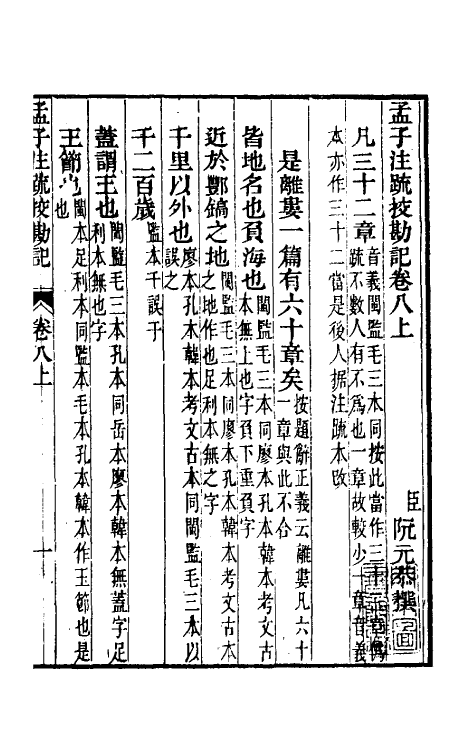 孟子注疏挍勘記卷八上
臣阮元恭撰
凡三十二章
音義閩監毛三本同按此當作三十
疏不數人有不爲也一章故較少一章音義
本亦作三十二當是後人据注疏本改
是離婁一篇有六十章矣
按題辭正義云離婁凡六十
一章與此不合
皆地名也負海也
閩監毛三本同廖本孔本韓本考文古
本無上也字負下重負字
近於酆鎬之地
閩監毛三本同廖本孔本韓本考文古本
之地作也足利本無之字
千里以外也
廖本孔本韓本考文古本同閩監毛三本以
誤之
千二百歲
監本千誤于
蓋謂王也
閩監毛三本孔本同岳本廖本韓本無蓋字足
利本無也字
王節也
閩本足利本同監本毛本孔本韓本作玉節也是
也
孟子注疏挍勘記
卷八上
一